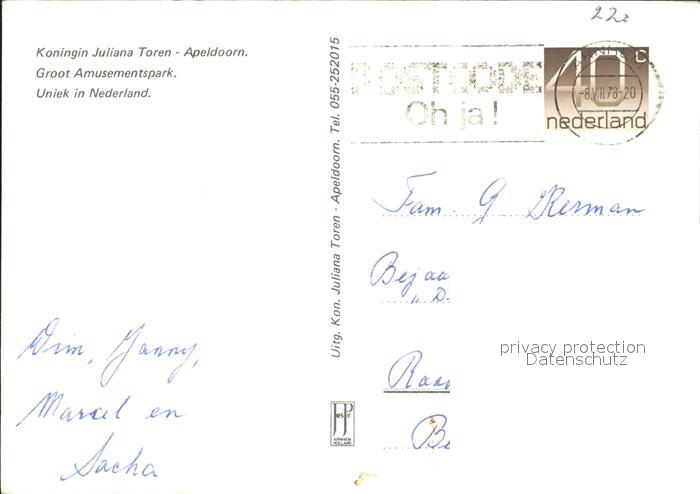 22
Koningin Juliana Toren - Apeldoorn.
Groot Amusementspark.
Uniek in Nederland.
Uitg. Kon. Juliana Toren - Apeldoorn. Tel. 055-252015
POSTCODE
Oh ja!
40 c
nederland
-8.VII.78-20
Fam. G
Bejaa
"D-
privacy protection
Datenschutz
Raa
Be
Wim, Janny,
Marcel en
Sacha
ARNHEM
HOLLAND